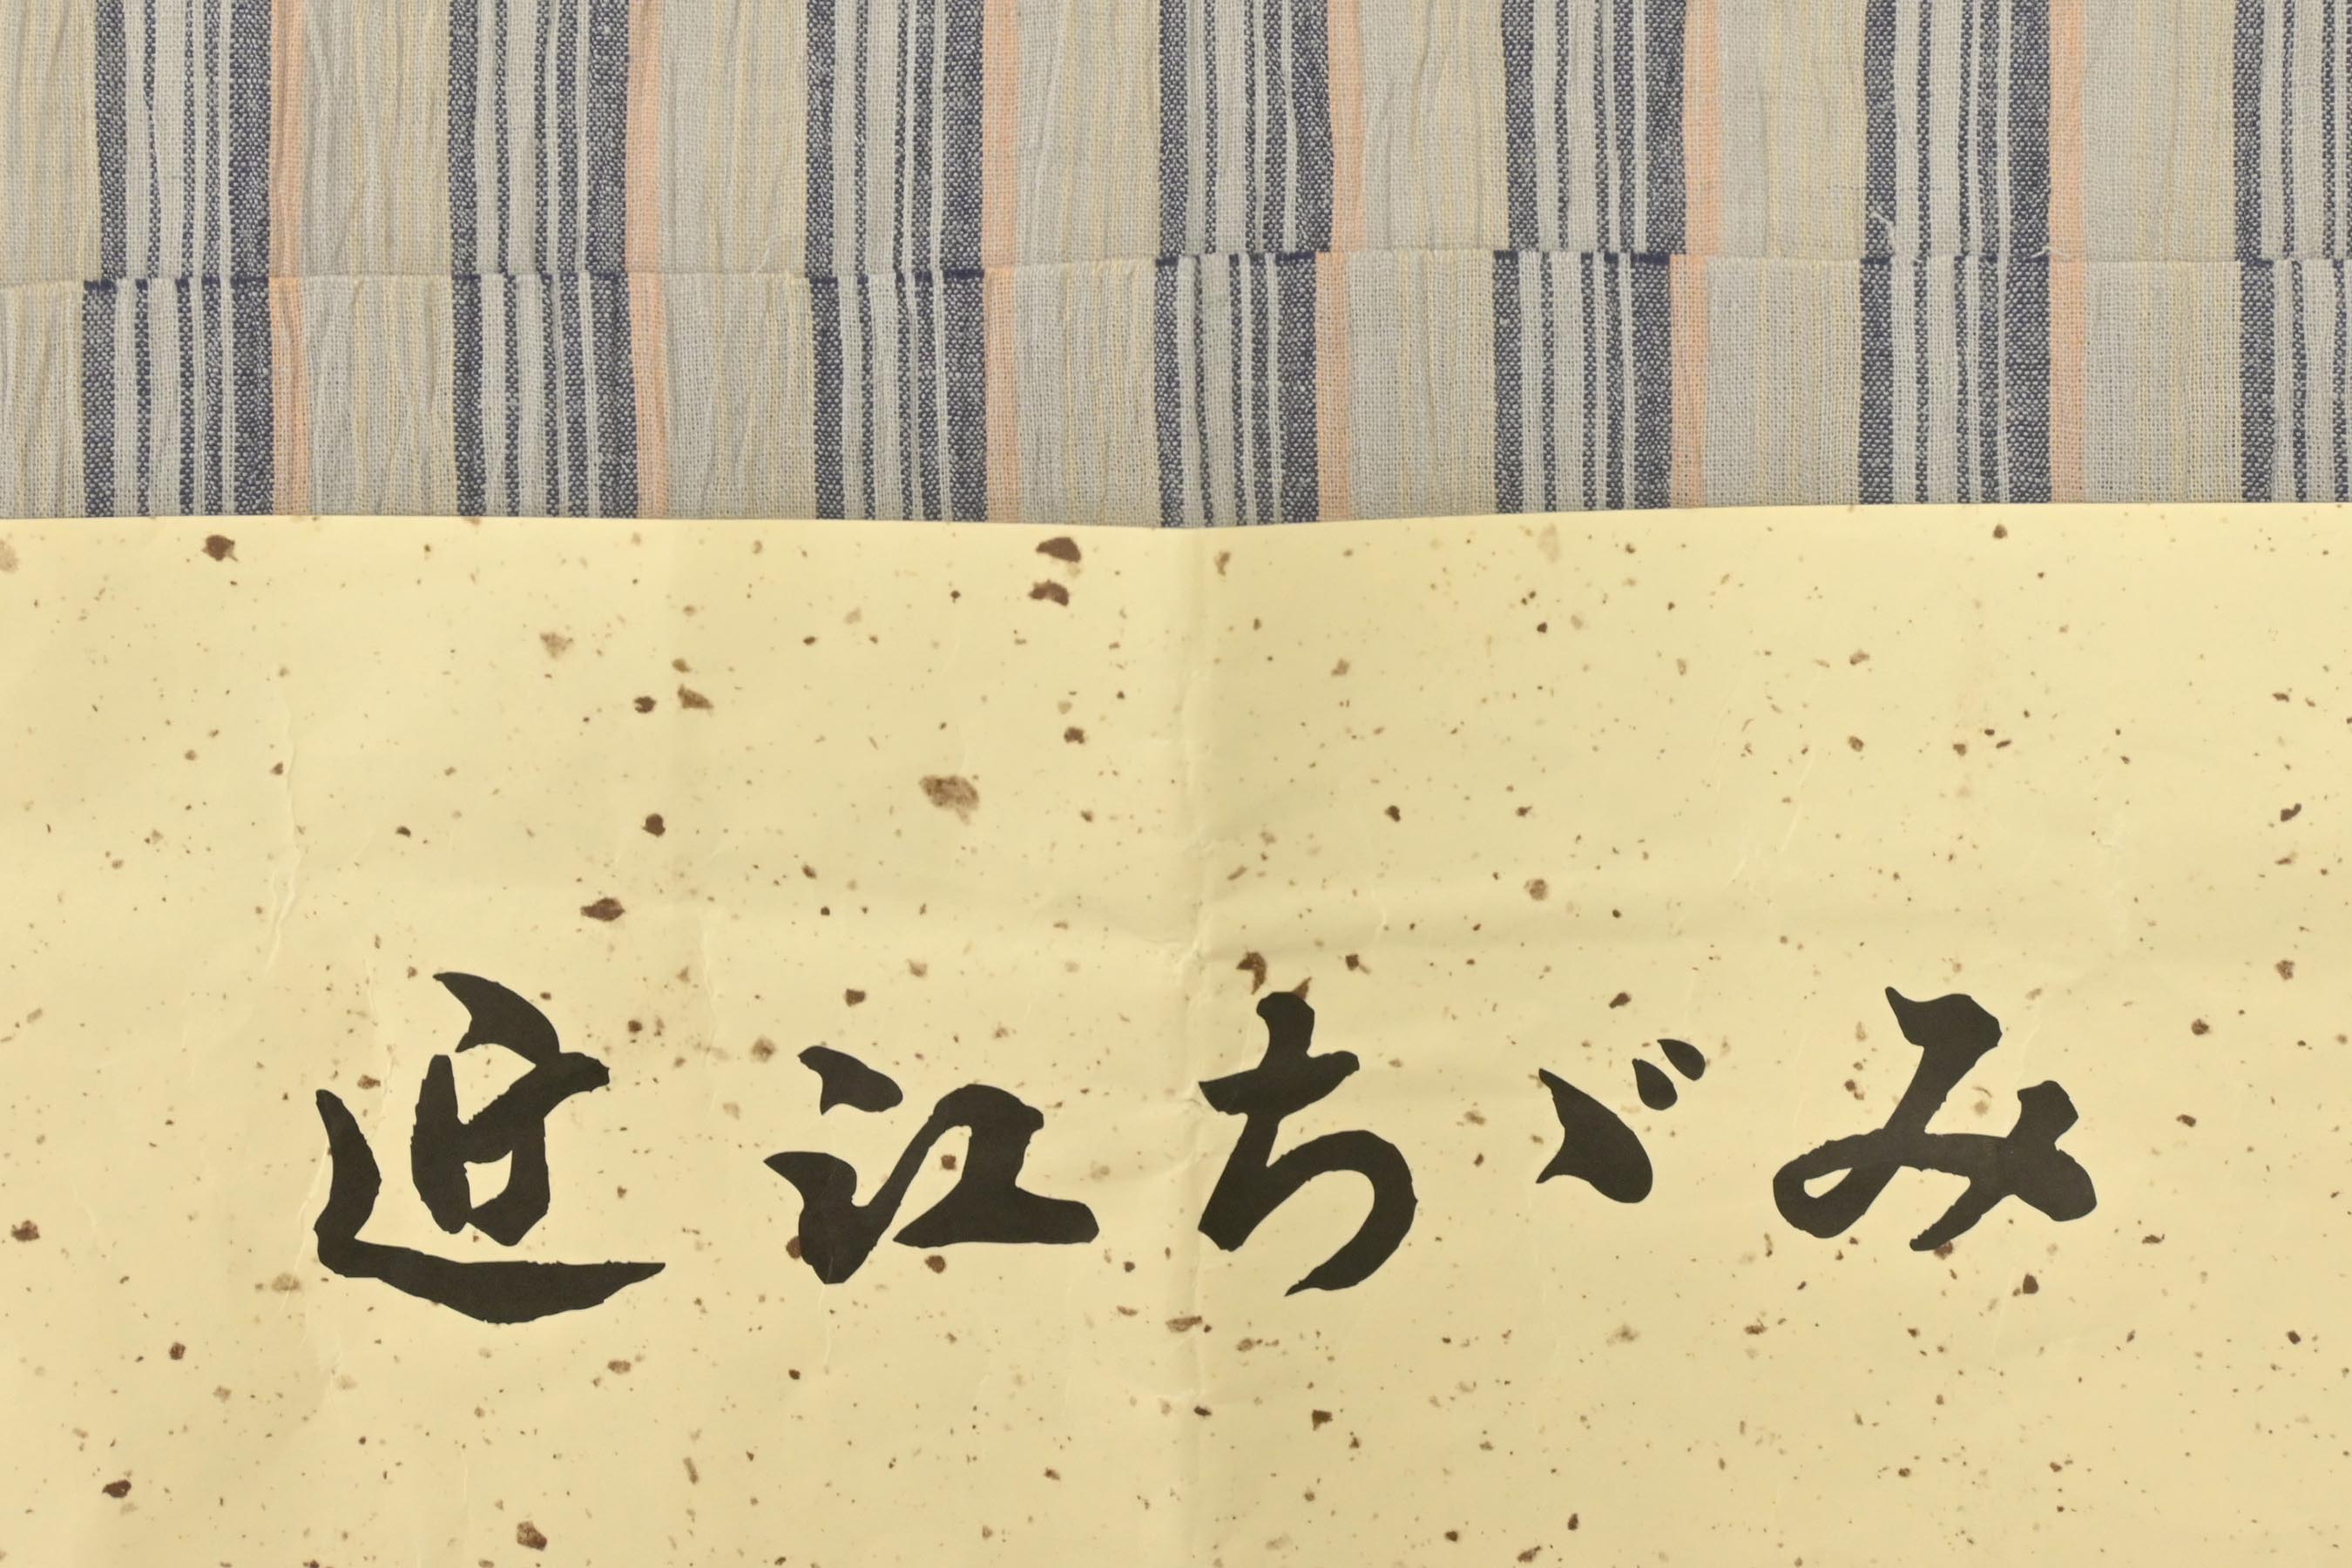 近江ちゞみ